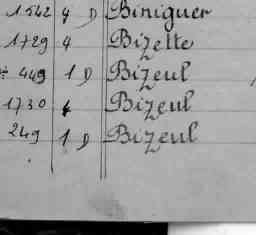 1542 4 D Biniguer
1729 4 Bizette
449 1 D Bizeul
1730 4 Bizeul
249 1 D Bizeul